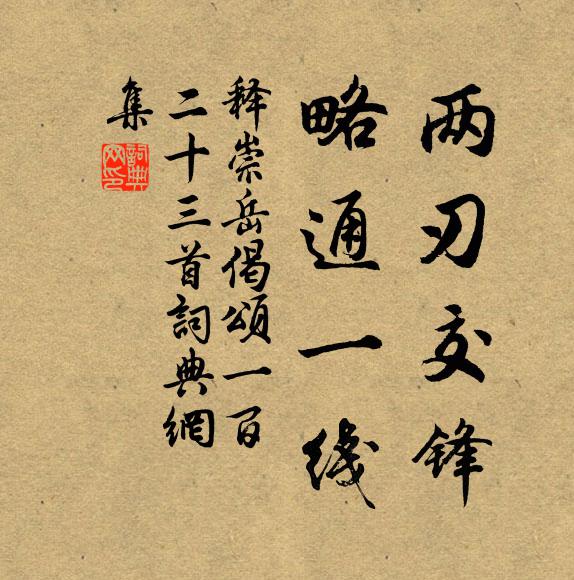 两刃交锋
略通一线
释崇岳偈頌一百
二十三首詞典網
集
詞典
网印